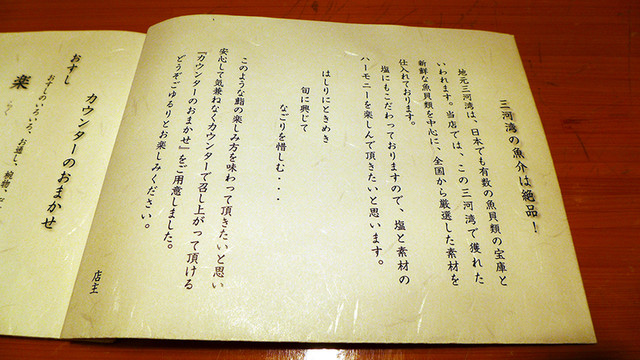 三河湾の魚介は絶品！
地元三河湾は、日本でも有数の魚貝類の宝庫と
いわれます。当店では、この三河湾で獲れた
新鮮な魚貝類を中心に、全国から厳選した素材を
仕入れております。
塩にもこだわっておりますので、塩と素材の
ハーモニーを楽しんで頂きたいと思います。
はしりにときめき
旬に興じて
なごりを惜しむ・・・
このような鮨の楽しみ方を味わって頂きたいと思い
安心して気兼ねなくカウンターで召し上がって頂ける
『カウンターのおまかせ』をご用意しました。
どうぞごゆるりとお楽しみください。
店主
カウンターのおまかせ
おすし
楽 らく
おすしのいろいろ、お通し、植物、